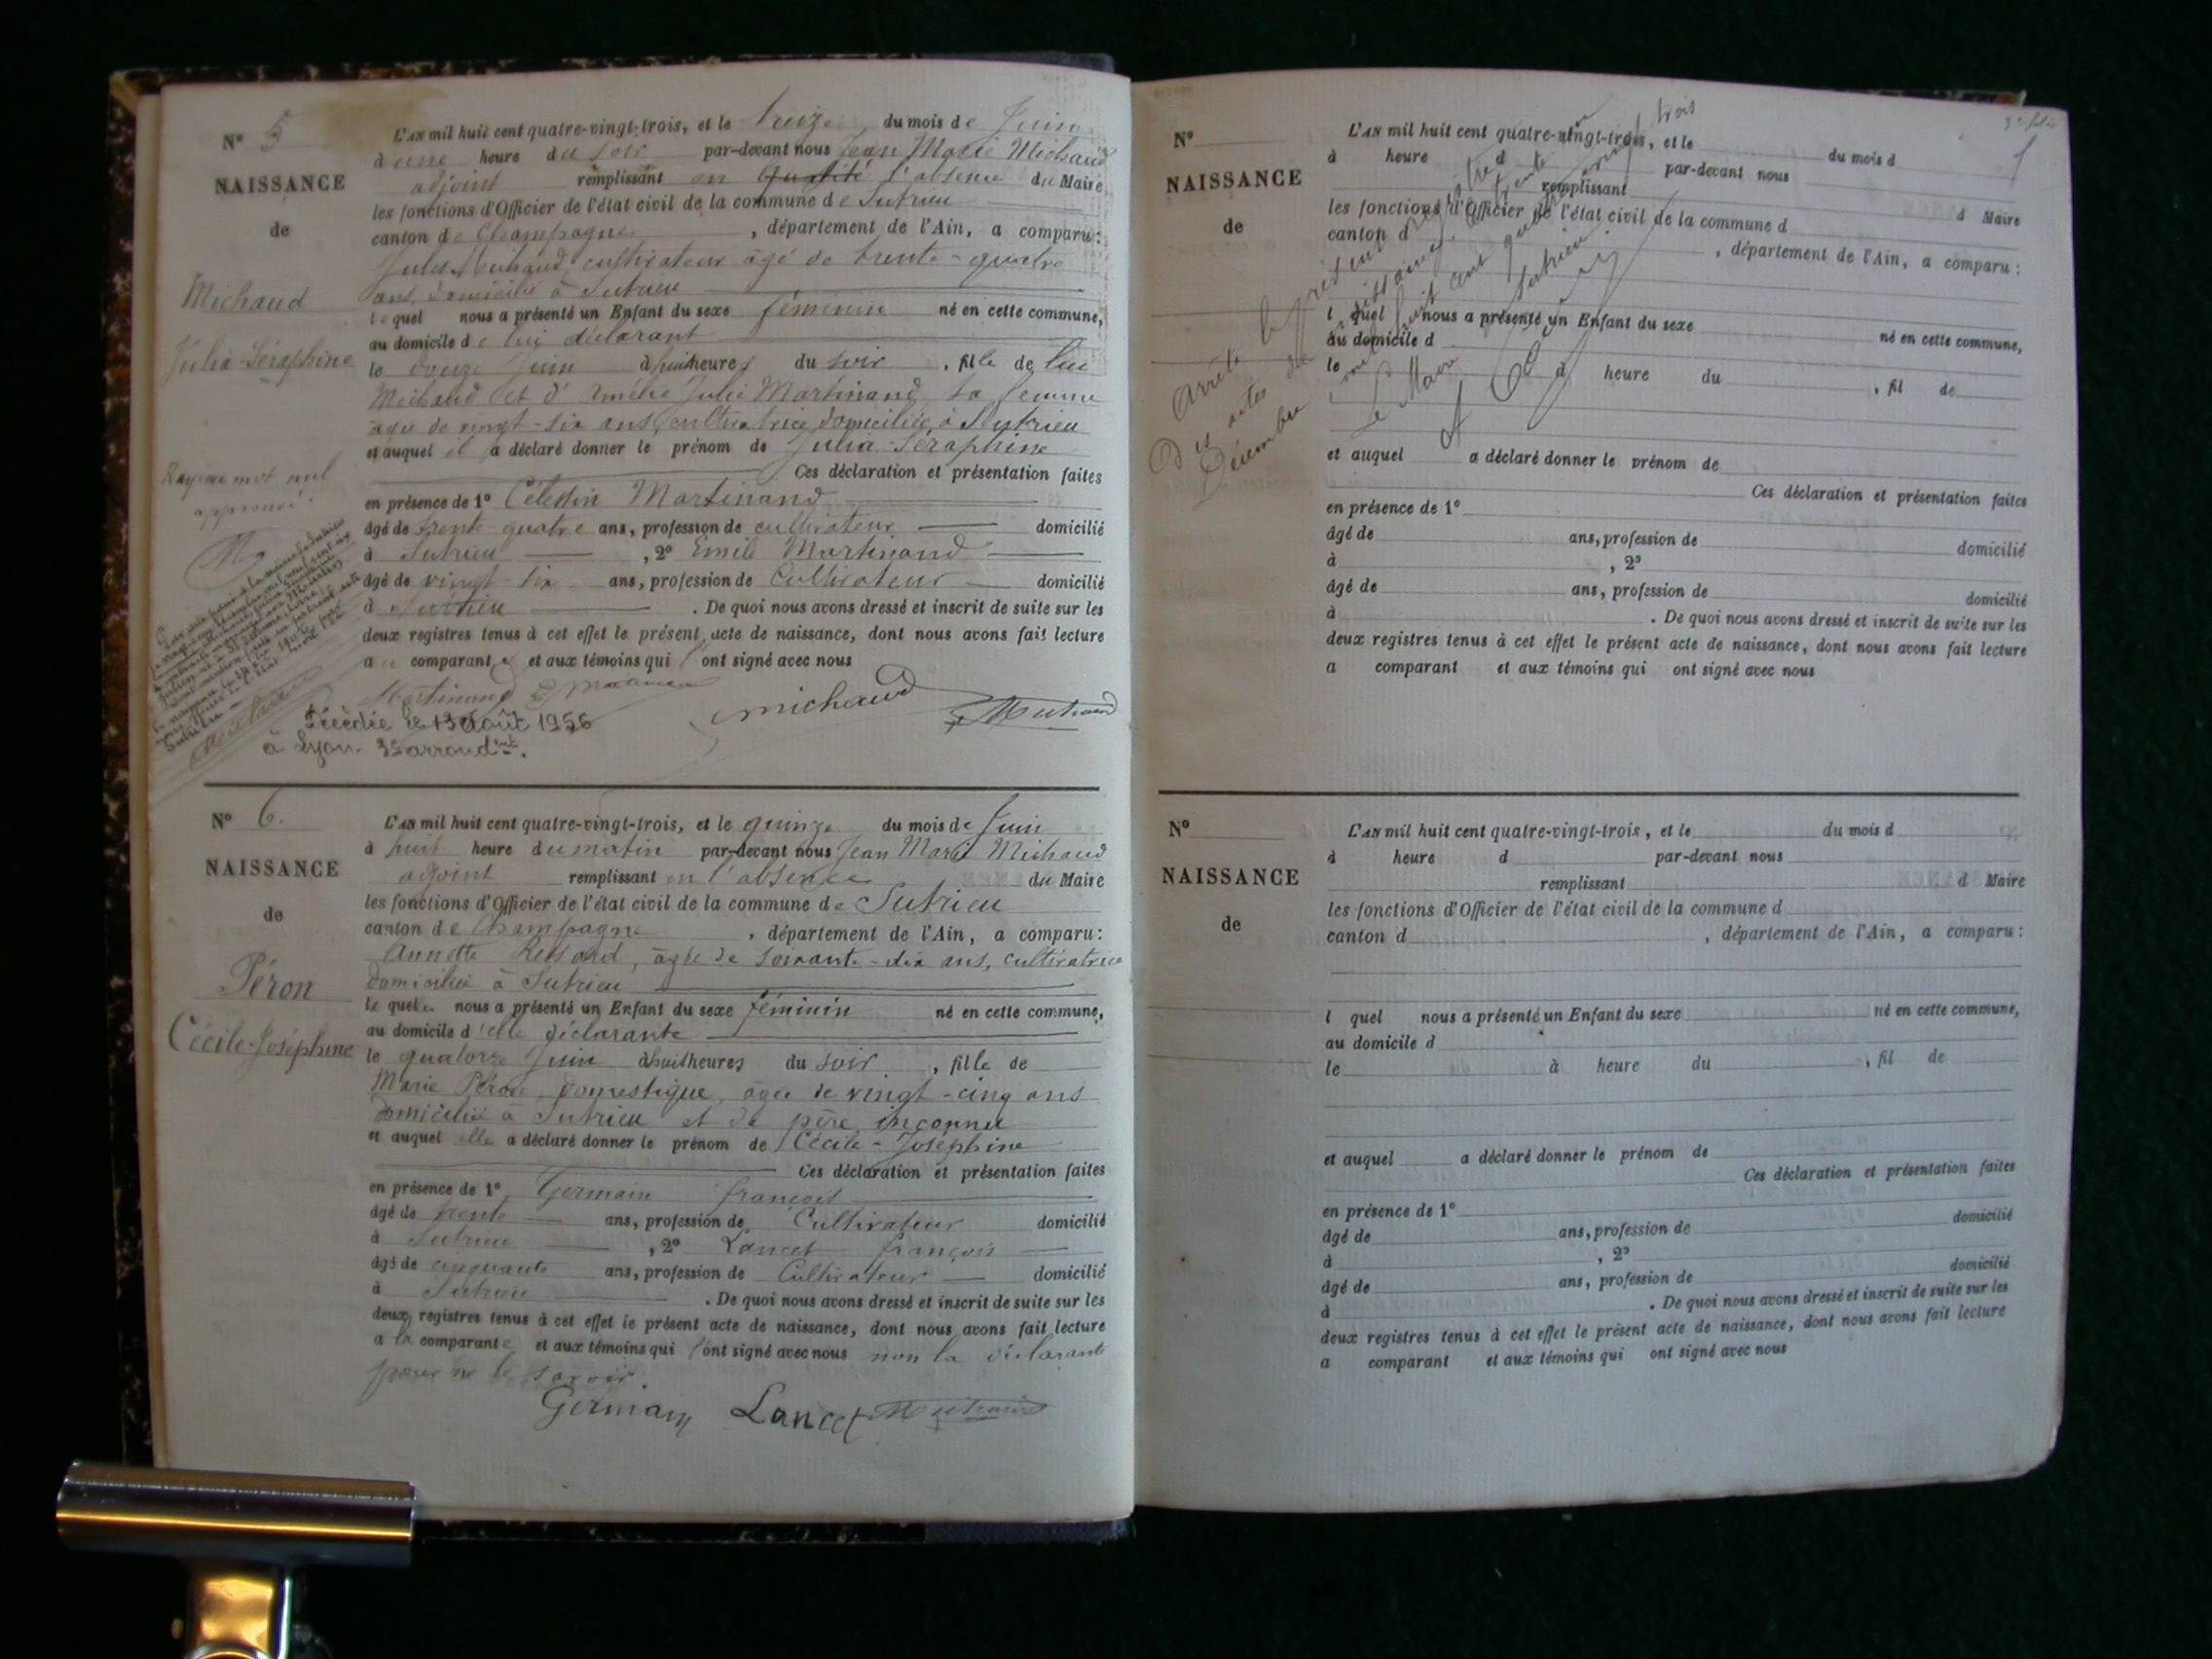 N° 5
NAISSANCE
de
Michaud
Julia-Séraphine
Rayé un mot nul
approuvé
L'AN mil huit cent quatre-vingt-trois, et le treize du mois de Juin
à une heure du soir par-devant nous Jean Marie Michaud
adjoint remplissant en qualité l'absence du Maire
les fonctions d'Officier de l'état civil de la commune de Sutrieu
canton de Champagne, département de l'Ain, a comparu:
Jules Michaud, cultivateur âgé de trente-quatre
ans, domicilié à Sutrieu
lequel nous a présenté un Enfant du sexe féminin né en cette commune,
au domicile de lui déclarant
le douze Juin à huit heures du soir, fille de lui
Michaud et d'Amélie Julie Martinand, sa femme
âgée de vingt-six ans, cultivatrice, domiciliée à Sutrieu
et auquel il a déclaré donner le prénom de Julia-Séraphine
Ces déclaration et présentation faites
en présence de 1° Célestin Martinand
âgé de trente quatre ans, profession de cultivateur domicilié
à Sutrieu, 2° Emile Martinand
âgé de vingt-six ans, profession de Cultivateur domicilié
à Sutrieu. De quoi nous avons dressé et inscrit de suite sur les
deux registres tenus à cet effet le présent acte de naissance, dont nous avons fait lecture
au comparant et aux témoins qui l'ont signé avec nous
Martinand michaud
Décédée le 13 Août 1956
à Lyon 3e arrondmt.
N° 6.
NAISSANCE
de
Péron
Cécile-Joséphine
L'AN mil huit cent quatre-vingt-trois, et le quinze du mois de Juin
à huit heure du matin par-devant nous Jean Marie Michaud
adjoint remplissant en l'absence du Maire
les fonctions d'Officier de l'état civil de la commune de Sutrieu
canton de Champagne, département de l'Ain, a comparu:
Annette, âgée de soixante-dix ans, cultivatrice
domiciliée à Sutrieu
le quelle nous a présenté un Enfant du sexe féminin né en cette commune,
au domicile d'elle déclarante
le quatorze Juin à huit heures du soir, fille de
Marie Péron, domestique, âgée de vingt-cinq ans
domiciliée à Sutrieu et de père inconnu
et auquel elle a déclaré donner le prénom de Cécile-Joséphine
Ces déclaration et présentation faites
en présence de 1° Germain françois
âgé de trente ans, profession de Cultivateur domicilié
à Sutrieu, 2° Lancet françois
âgé de cinquante ans, profession de Cultivateur domicilié
à Sutrieu. De quoi nous avons dressé et inscrit de suite sur les
deux registres tenus à cet effet le présent acte de naissance, dont nous avons fait lecture
a la comparante et aux témoins qui l'ont signé avec nous non la déclarante
pour ne le savoir.
Germain Lancet
N°
NAISSANCE
de
L'AN mil huit cent quatre-vingt-trois, et le du mois d
à heure d par-devant nous
remplissant d Maire
les fonctions d'Officier de l'état civil de la commune d
canton d, département de l'Ain, a comparu:
l quel nous a présenté un Enfant du sexe né en cette commune,
au domicile d
le à heure du, fil de
et auquel a déclaré donner le prénom de
Ces déclaration et présentation faites
en présence de 1°
âgé de ans, profession de domicilié
à, 2°
âgé de ans, profession de domicilié
à. De quoi nous avons dressé et inscrit de suite sur les
deux registres tenus à cet effet le présent acte de naissance, dont nous avons fait lecture
a comparant et aux témoins qui ont signé avec nous
Arrêté le présent registre
des actes de naissance le trente
Décembre mil huit cent quatre vingt trois
Sutrieu
Le Maire
N°
NAISSANCE
de
L'AN mil huit cent quatre-vingt-trois, et le du mois d
à heure d par-devant nous
remplissant d Maire
les fonctions d'Officier de l'état civil de la commune d
canton d, département de l'Ain, a comparu:
l quel nous a présenté un Enfant du sexe né en cette commune,
au domicile d
le à heure du, fil de
et auquel a déclaré donner le prénom de
Ces déclaration et présentation faites
en présence de 1°
âgé de ans, profession de domicilié
à, 2°
âgé de ans, profession de domicilié
à. De quoi nous avons dressé et inscrit de suite sur les
deux registres tenus à cet effet le présent acte de naissance, dont nous avons fait lecture
a comparant et aux témoins qui ont signé avec nous